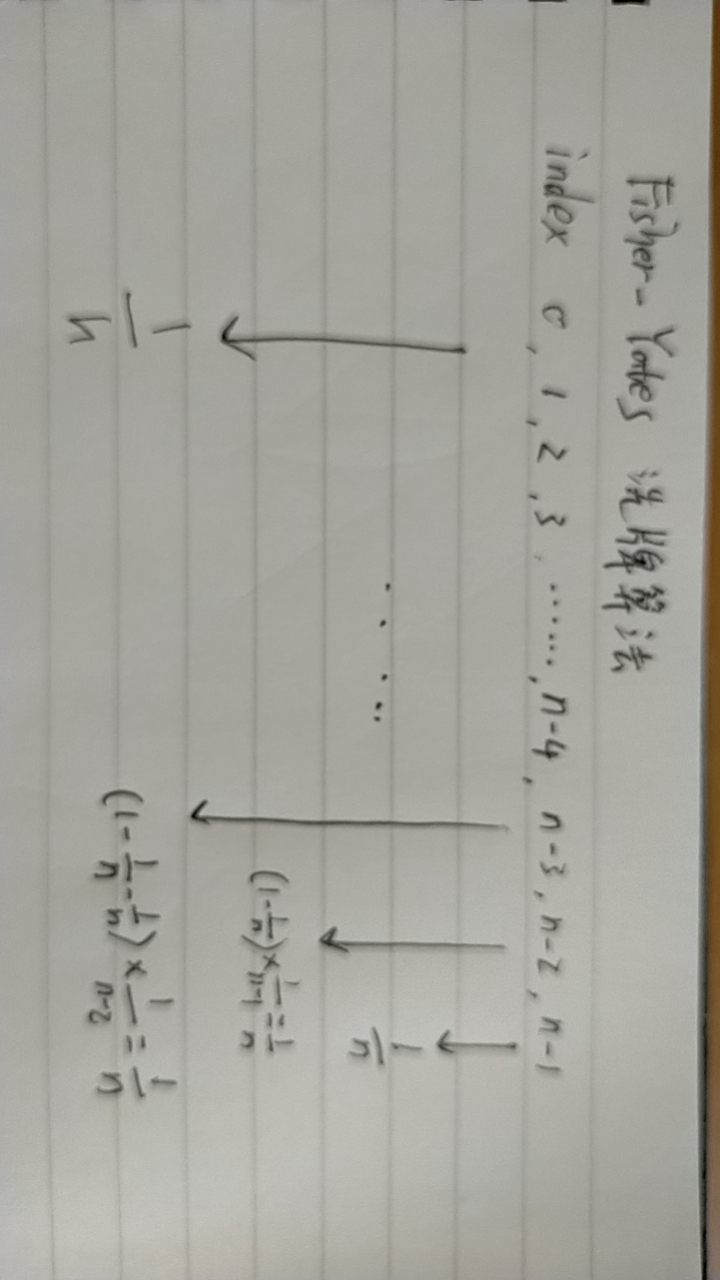 Fisher-Yates 洗牌算法
index 0, 1, 2, 3, ......, n-4, n-3, n-2, n-1
1/n
(1-1/n)×1/(n-1)=1/n
1/n
(1-1/n-1/n)×1/(n-2)=1/n